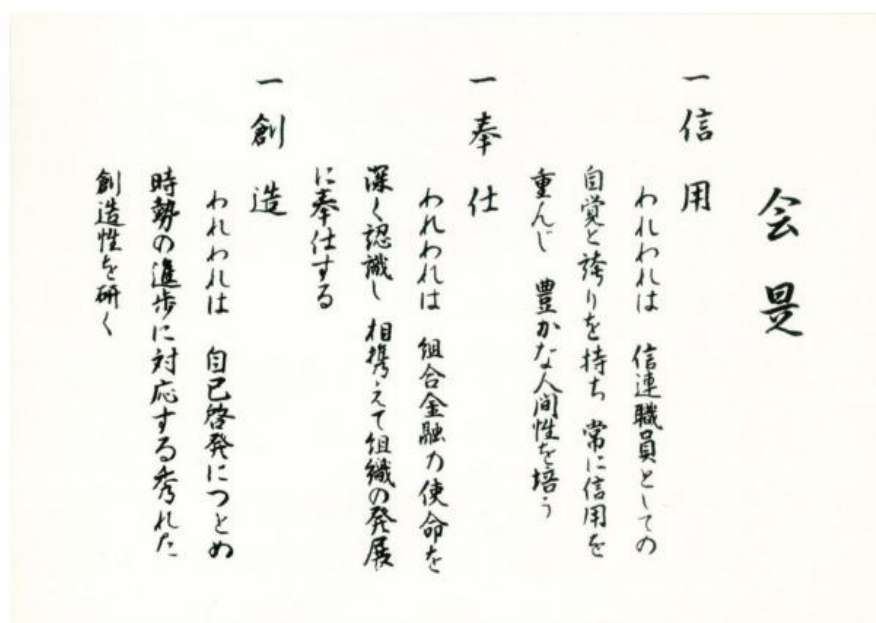 会是
一 信用
われわれは 信連職員としての
自覚と誇りを持ち 常に信用を
重んじ 豊かな人間性を培う
一 奉仕
われわれは 組合金融の使命を
深く認識し 相携えて組織の発展
に奉仕する
一 創造
われわれは 自己啓発につとめ
時勢の進歩に対応する秀れた
創造性を研く